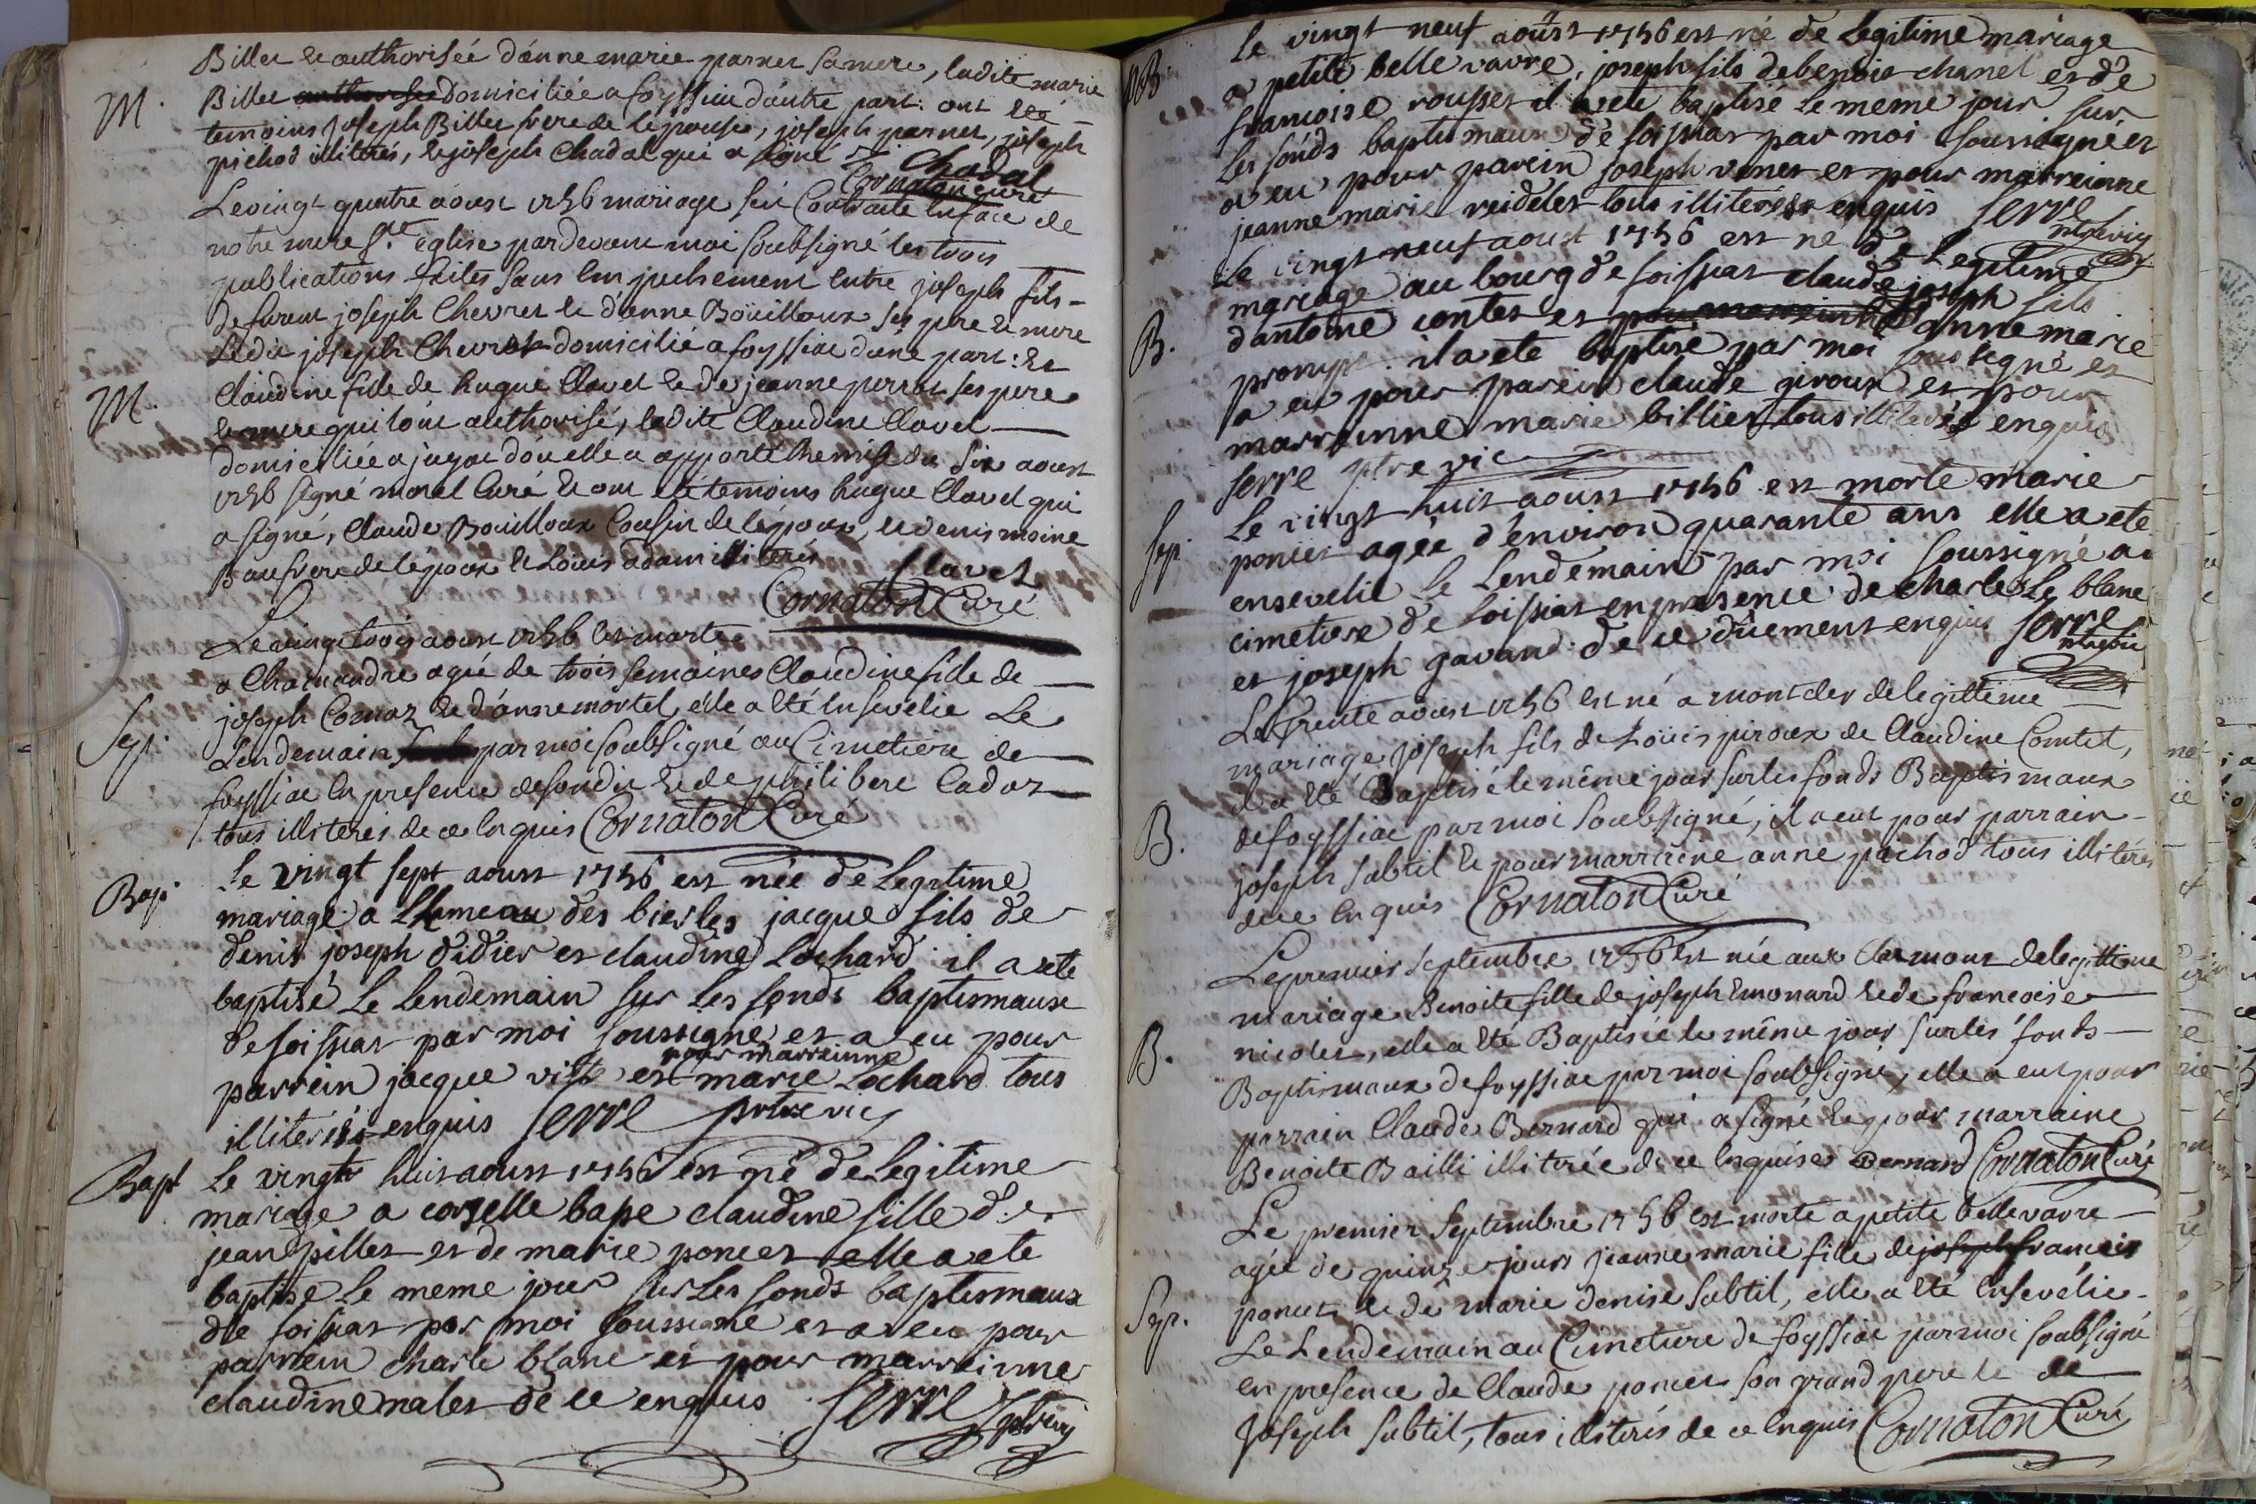 Billet et authorisée d'anne marie parnet sa mere, ladite marie
M. Billet authorisee domiciliée a foyssiac d'autre part: ont été
temoins Joseph Billet frere de lepouse, joseph parnet, joseph
pichod illiterés, et joseph Chadal qui a signé Chadal
Cornaton curé
Le vingt quatre aoust 1756 mariage fut Contracté en face de
notre mere Ste église pardevant moi soubsigné les trois
publications faites sans empechement entre joseph fils
de furent joseph Chevret et d'anne Boüilloux ses pere et mere
Ledit joseph Chevret domicilié a foyssiac d'une part: et
M. Claudine fille de hugue Clavel et de jeanne perret ses pere
et mere qui l'ont authorisé, ladite Claudine Clavel
domiciliée a jayac d'où elle a apporté remise du six aoust
1756 signé morel Curé et ont été temoins hugue Clavel qui
a signé, Claude Boüilloux Cousin de lépoux, et denis moine
Baufrere de lépoux et Loüis adam illiterés
Clavel
Cornaton Curé
Le vingt trois aoust 1756 est morte
a Chamandre agée de trois semaines Claudine fille de
joseph Cornaz et d'anne mortel, elle a été ensevelie Le
Sep. Lendemain par moi soubsigné au Cimetiere de
foyssiac en presence desondit et de philibert Cadoz
tous illiterés de ce enquis Cornaton Curé
Bap. Le vingt sept aoust 1756 est née de Legitime
mariage a Lhameau des biesles jacque fils de
denis joseph didier et claudine Lochard il a ete
baptisé Le Lendemain sur Les fonds baptismaux
de foissiat par moi soussigne et a eu pour
pour marreinne
parrein jacque vitte et marie Lochard tous
illiterés enquis Serre ptre vic
Bapt Le vingt huit aoust 1756 est né de Legitime
mariage a corzelle bape claudine fille d.e
jean pillet et de marie poncet elle a ete
baptise Le meme jour sur Les fonds baptismaux
de foissiat par moi soussigne et a eu pour
parrein charle blanc et pour marreinne
claudine malet de ce enquis Serre ptre vic
NB Le vingt neuf aoust 1756 est né de Legitime mariage
a petite belle vavre, joseph fils de benoit chanel et de
francoise rousset il a ete baptisé Le meme jour sur
Les fonds baptismaux de foissiat par moi soussigné et
a eu pour parein joseph venet et pour marreinne
jeanne marie reidelet tous illiterés enquis Serre
ptre vic
Le vingt neuf aoust 1756 est ne de Legitime
mariage au bourg de foissiat claude joseph fils
B. d'antoine contet et pour marreinne d'anne marie
prompt. il a ete baptise par moi soussigné et
a eu pour parein claude piroux et pour
marreinne marie billiet tous illiterés enquis
Serre ptre vic
Le vingt huit aoust 1756 est morte marie
Sep. poncet agée d'environ quarante ans elle a ete
ensevelie Le Lendemain par moi soussigné au
cimetiere de foissiat en presence de charle Le blanc
et joseph gavand de ce duement enquis Serre
ptre vic
Le trente aoust 1756 est né a montcler de legittime
mariage Joseph fils de Loüis piroux de Claudine Comtet,
il a été Baptisé le même jour sur les fonds Baptismaux
B. de foyssiac par moi soubsigné, il a eut pour parrain
joseph subtil et pour marraine anne pachod tous illiterés
de ce enquis Cornaton Curé
Le premier Septembre 1756 est née aux Clermont de legittime
mariage Benoite fille de joseph Emonard et de francoise
B. nicolet, elle a été Baptisée le même jour sur les fonds
Baptismaux de foyssiac par moi soubsigné, elle a eut pour
parrain Claude Bernard qui a signé et pour marraine
Benoite Bailli illiterée de ce enquise Bernard Cornaton Curé
Le premier Septembre 1756 est morte a petite bellevavre
agée de quinze jours jeanne marie fille de joseph francois
Sep. poncet et de marie denise subtil, elle a été ensevelie
Le Lendemain au Cimetiere de foyssiac par moi soubsigné
en presence de Claude poncet son grand pere et de
Joseph subtil, tous illiterés de ce enquis Cornaton Curé